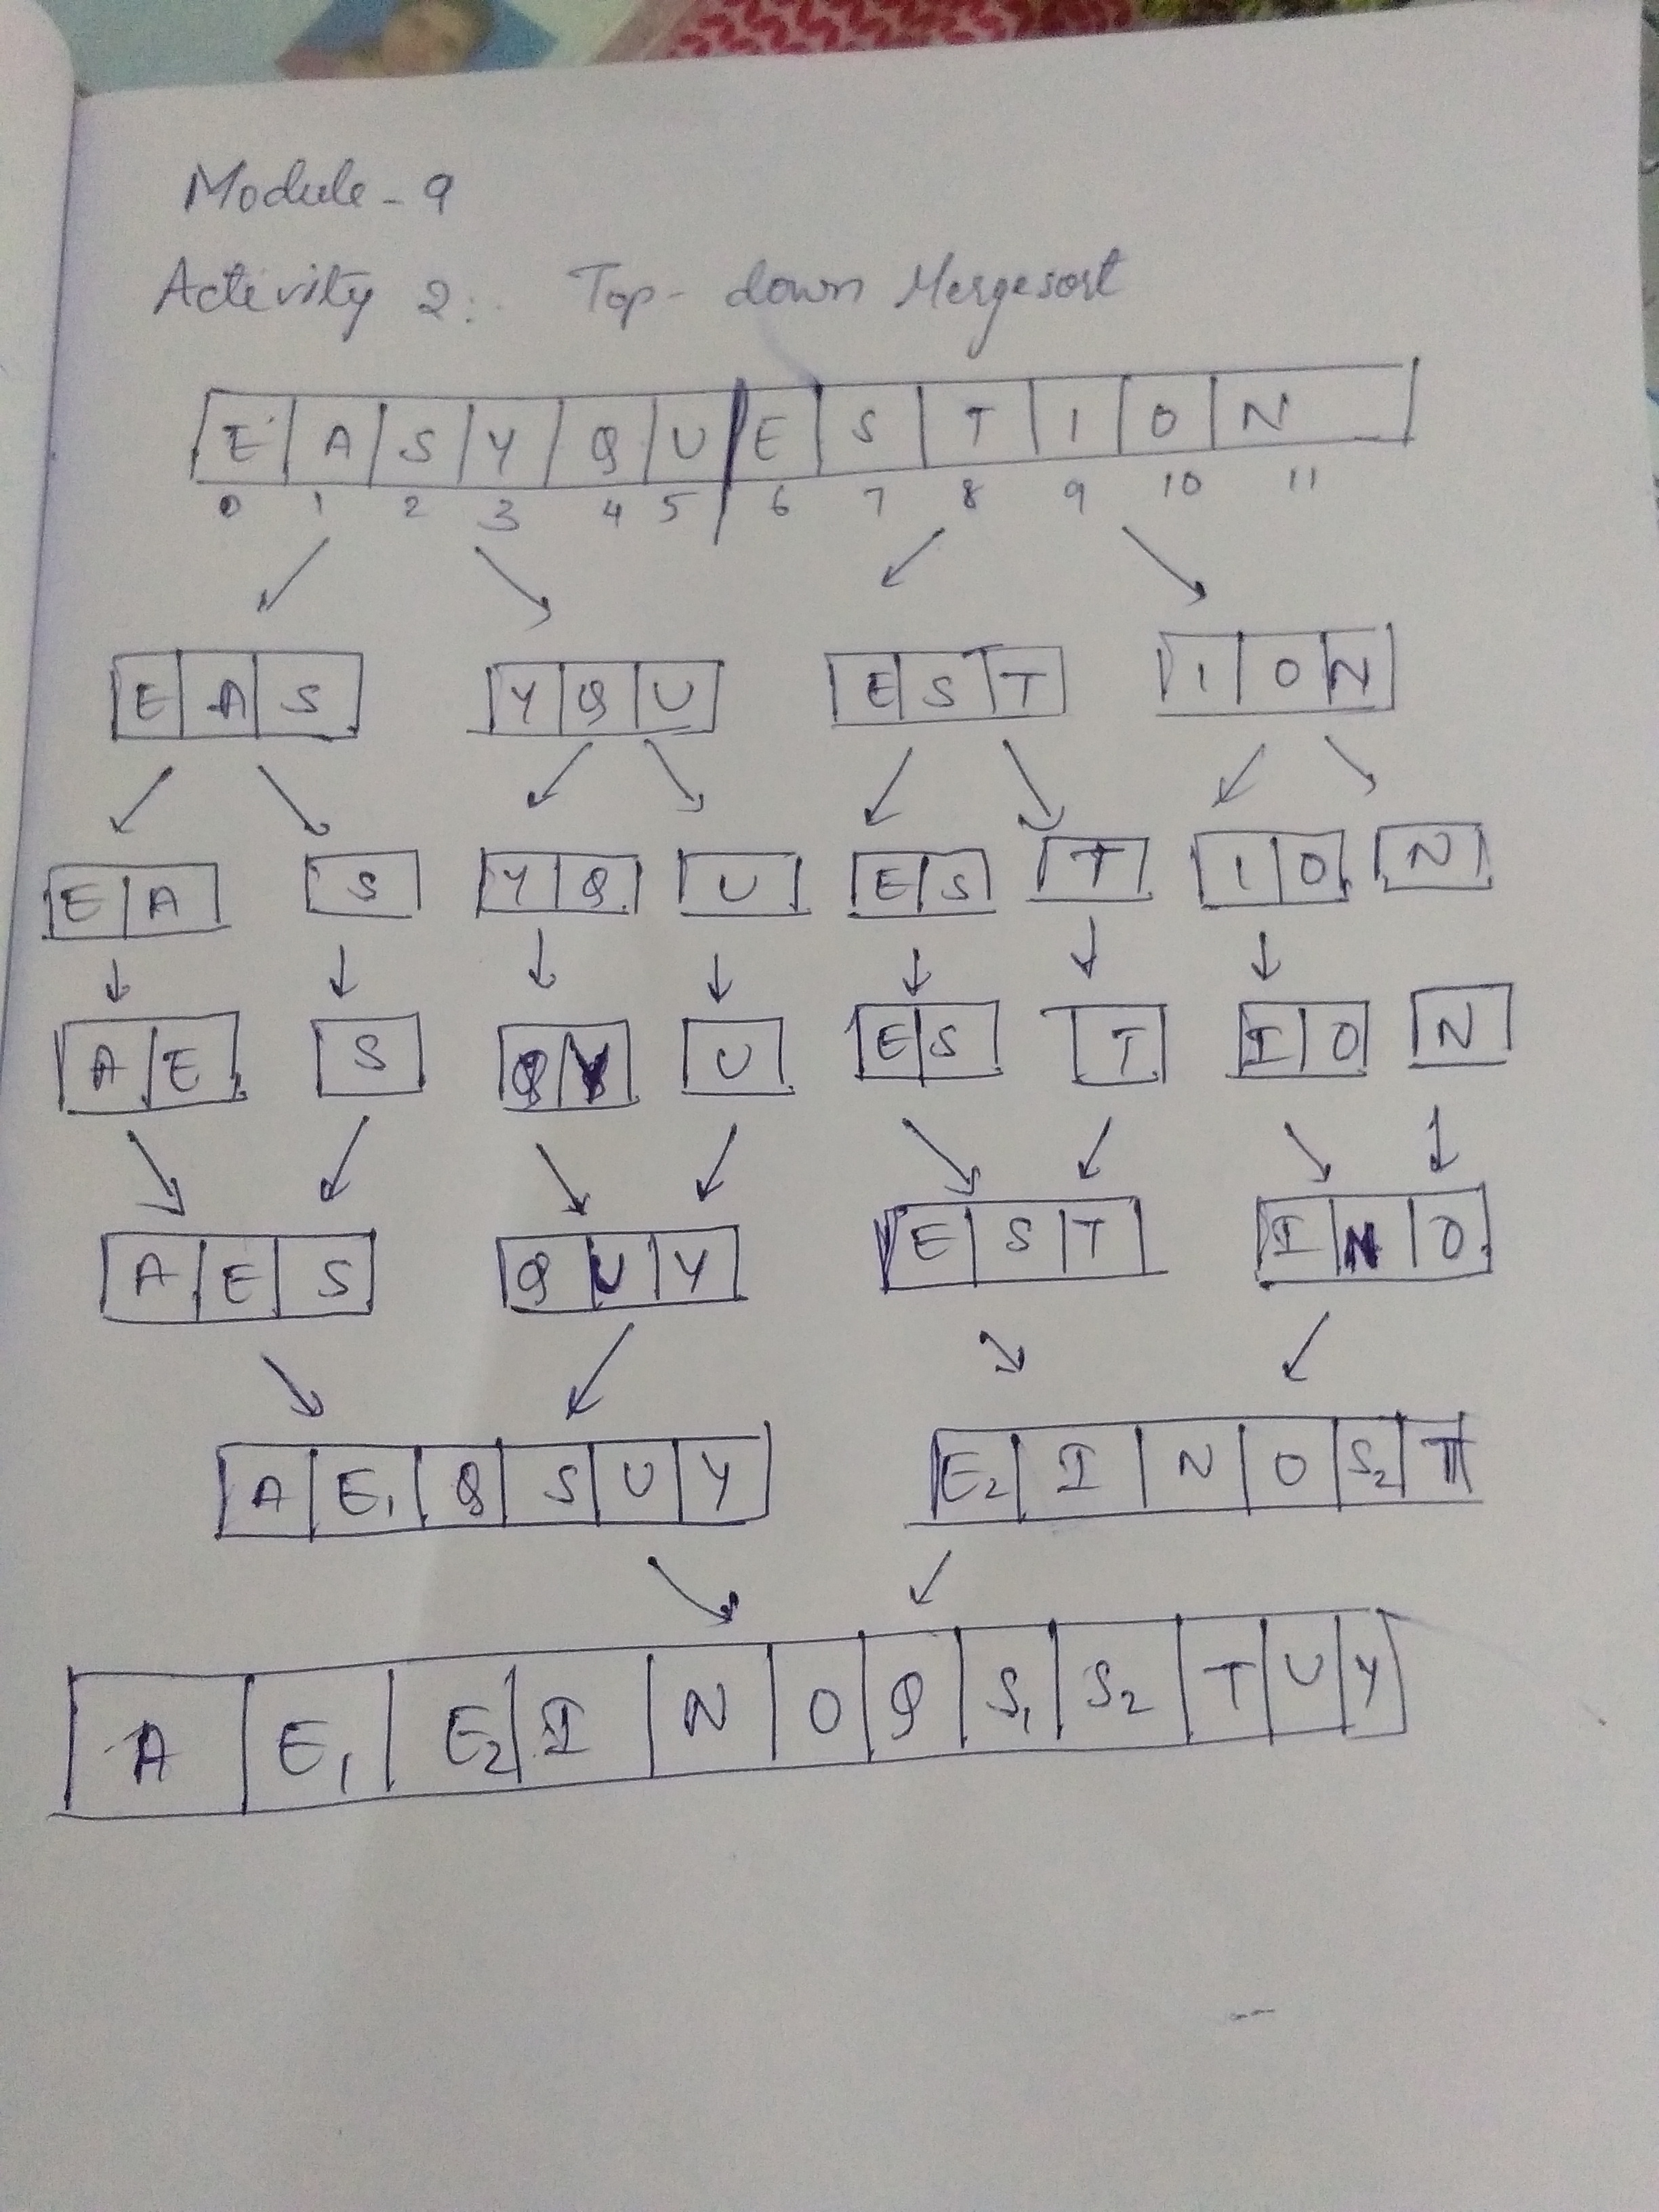 Module - 9
Activity 2: Top-down Mergesort
E A S Y Q U E S T I O N
0 1 2 3 4 5 6 7 8 9 10 11
E A S Y Q U E S T I O N
E A S Y Q U E S T I O N
A E S Q Y U E S T I O N
A E S Q U Y E S T I N O
A E1 Q S U Y E2 I N O S2 T
A E1 E2 I N O Q S1 S2 T U Y